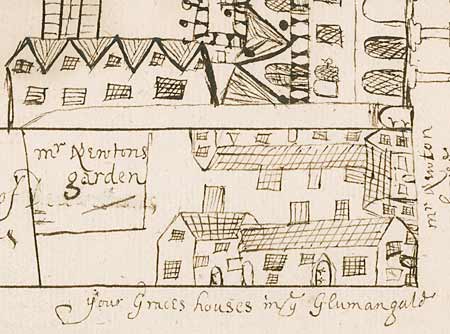 mr Newtons
garden
your Graces houses in ye Glumangate
mr Newton